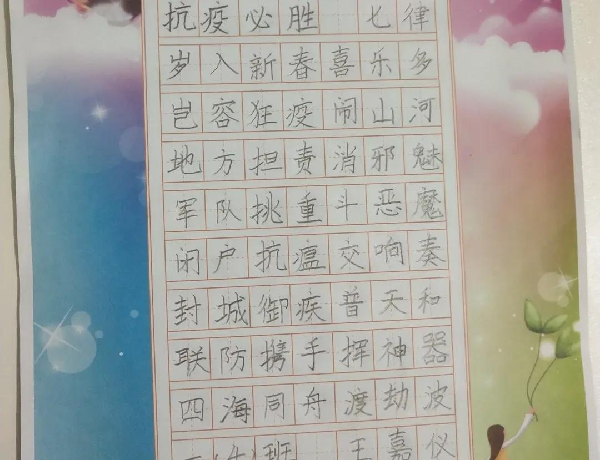 抗疫必胜 七律
岁入新春喜乐多
岂容狂疫闹山河
地方担责消邪魅
军队挑重斗恶魔
闭户抗瘟交响奏
封城御疾普天和
联防携手挥神器
四海同舟渡劫波
班 王嘉仪